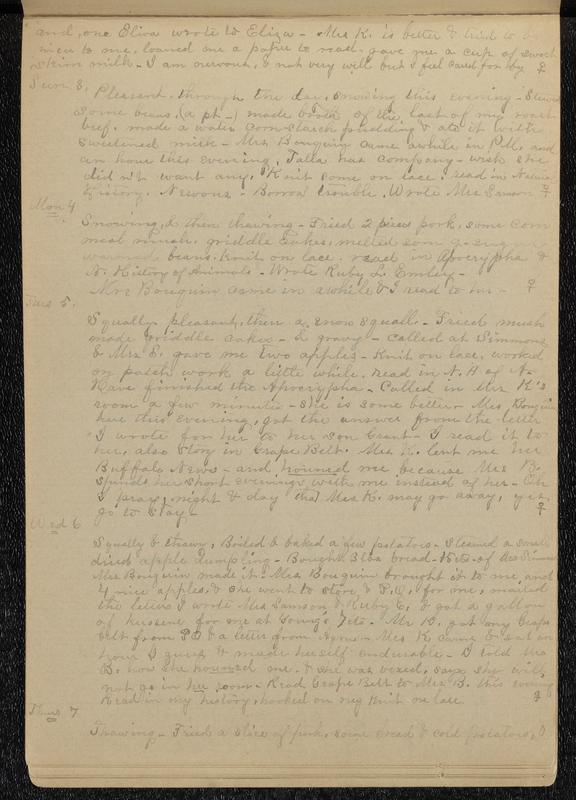 and, one Eliva wrote to Eliza - Mrs K. is better & tried to be
nice to me, loaned me a paper to read. gave me a cup of sweet
skim milk - I am nervous, & not very well but I feel cared for by ♀
Sun 3, Pleasant, through the day, snowing this evening - Stewed
some beans, (a pt -) made broth of the last of my roast
beef. made a water corn starch pudding & ate it with
sweetened milk - Mrs Bouquin came awhile in P.M. and
an hour this evening, Talla has company - wish she
did n't want any. Knit some on lace, read in Nature
History. Nervous - Borrow trouble. Wrote Mrs Samson ♀
Mon 4
Snowing, & then thawing - Fried 2 pieces pork, some corn
meal mush, griddle cakes, melted some sugar
warmed beans. Knit on lace, read in Apocrypha &
N. History of Animals - Wrote Ruby L. Emley -
Mrs Bouquin came in awhile & I read to her - ♀
Tues 5.
Squally pleasant, then a snow squall - Fried mush
made griddle cakes - & gravy - called at Simmons
& Mrs S. gave me two apples - Knit on lace, worked
on patch work a little while, read in N. H of A -
Have finished the Apocrypha - Called in Mrs K's
room a few minutes - she is some better - Mrs Bouquin
here this evening, got the answer from the letter
I wrote for her to her son Grant - I read it to
her, also story in Grape Belt. Mrs K. lent me her
Buffalo News - and hounded me because Mrs B.
spends her short evenings with me instead of her - Oh
I pray, night & day that Mrs K. may go away, yes
go to stay - ♀
Wed 6
Squally & thawy, Boiled & baked a few potatoes - Steamed a small
dried apple dumpling - Bought 3 lbs bread - 15 cts - of Mrs Simmons
Mrs Bouquin made it. Mrs Bouquin brought it to me, and
4 nice apples, & she went to store & P.O. for me, mailed
the letters I wrote Mrs Samson & Ruby E, & got a gallon
of kerosene for me at Young's 7cts - Mr B. got my Grape
Belt from PO & a letter from - Mrs K. came & sat an
hour I guess & made herself endurable - I told Mrs
B. how she hounded me. & she was vexed, says she will
not go in her room - Read Grape Belt to Mrs B. this evening
Read in my history, hooked on rug Knit on lace. ♀
Thurs 7
Thawing - Fried a slice of pork, some bread & cold potatoes,